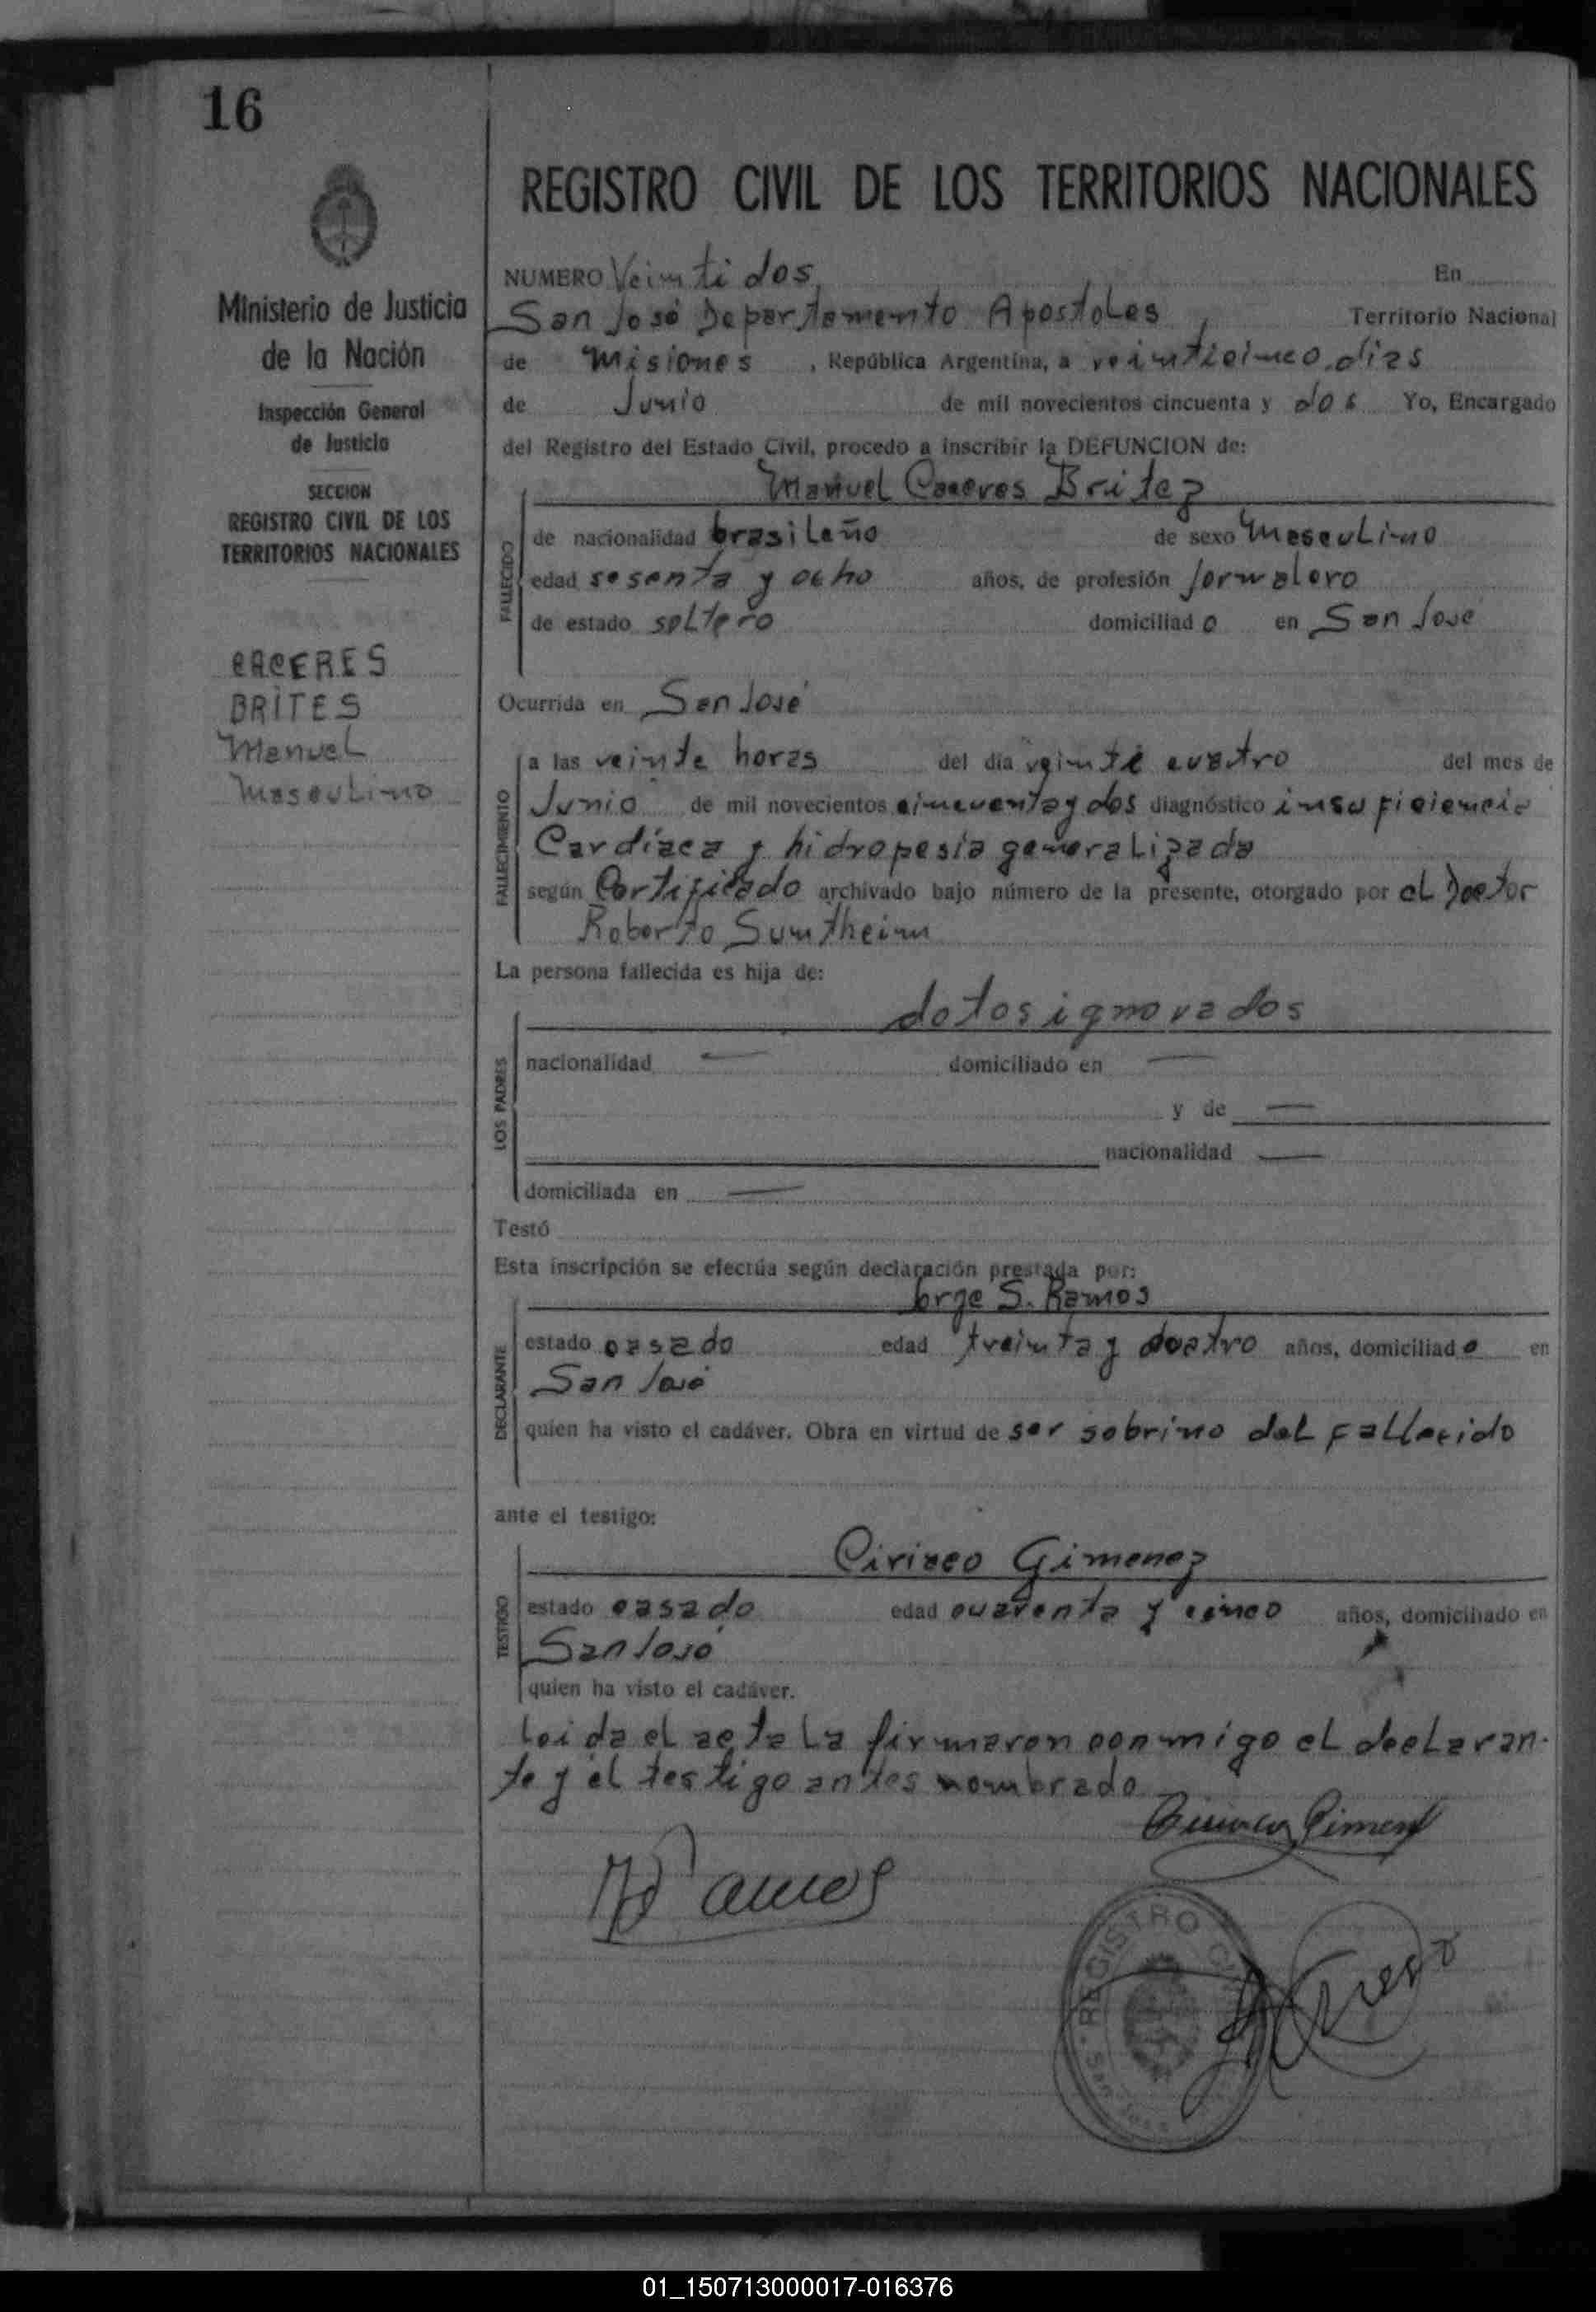 16
Ministerio de Justicia
de la Nación
Inspección General
de Justicia
SECCION
REGISTRO CIVIL DE LOS
TERRITORIOS NACIONALES
CACERES
BRITES
Manuel
Masculino
REGISTRO CIVIL DE LOS TERRITORIOS NACIONALES
NUMERO Veinti dos, En
San José Departamento Apostoles, Territorio Nacional
de Misiones, República Argentina, a veinticinco dias
de Junio de mil novecientos cincuenta y dos Yo, Encargado
del Registro del Estado Civil, procedo a inscribir la DEFUNCION de:
Manuel Caceres Britez
FALLECIDO
de nacionalidad brasileño de sexo Masculino
edad sesenta y ocho años, de profesión jornalero
de estado soltero domiciliado en San José
Ocurrida en San José
FALLECIMIENTO
a las veinte horas del día veinti cuatro del mes de
Junio de mil novecientos cincuenta y dos diagnóstico insuficiencia
Cardíaca y hidropesía generalizada
según Certificado archivado bajo número de la presente, otorgado por el Doctor
Roberto
La persona fallecida es hija de:
datos ignorados
LOS PADRES
nacionalidad — domiciliado en —
y de —
nacionalidad —
domiciliada en —
Testó
Esta inscripción se efectúa según declaración prestada por:
Jorge S. Ramos
DECLARANTE
estado casado edad treinta y cuatro años, domiciliado en
San José
quien ha visto el cadáver. Obra en virtud de ser sobrino del fallecido
ante el testigo:
Ciriaco Gimenez
TESTIGO
estado casado edad cuarenta y cinco años, domiciliado en
San José
quien ha visto el cadáver.
Leida el acta la firmaron conmigo el declaran-
te y el testigo antes nombrado
Ramos
REGISTRO CIVIL
San José
01_150713000017-016376